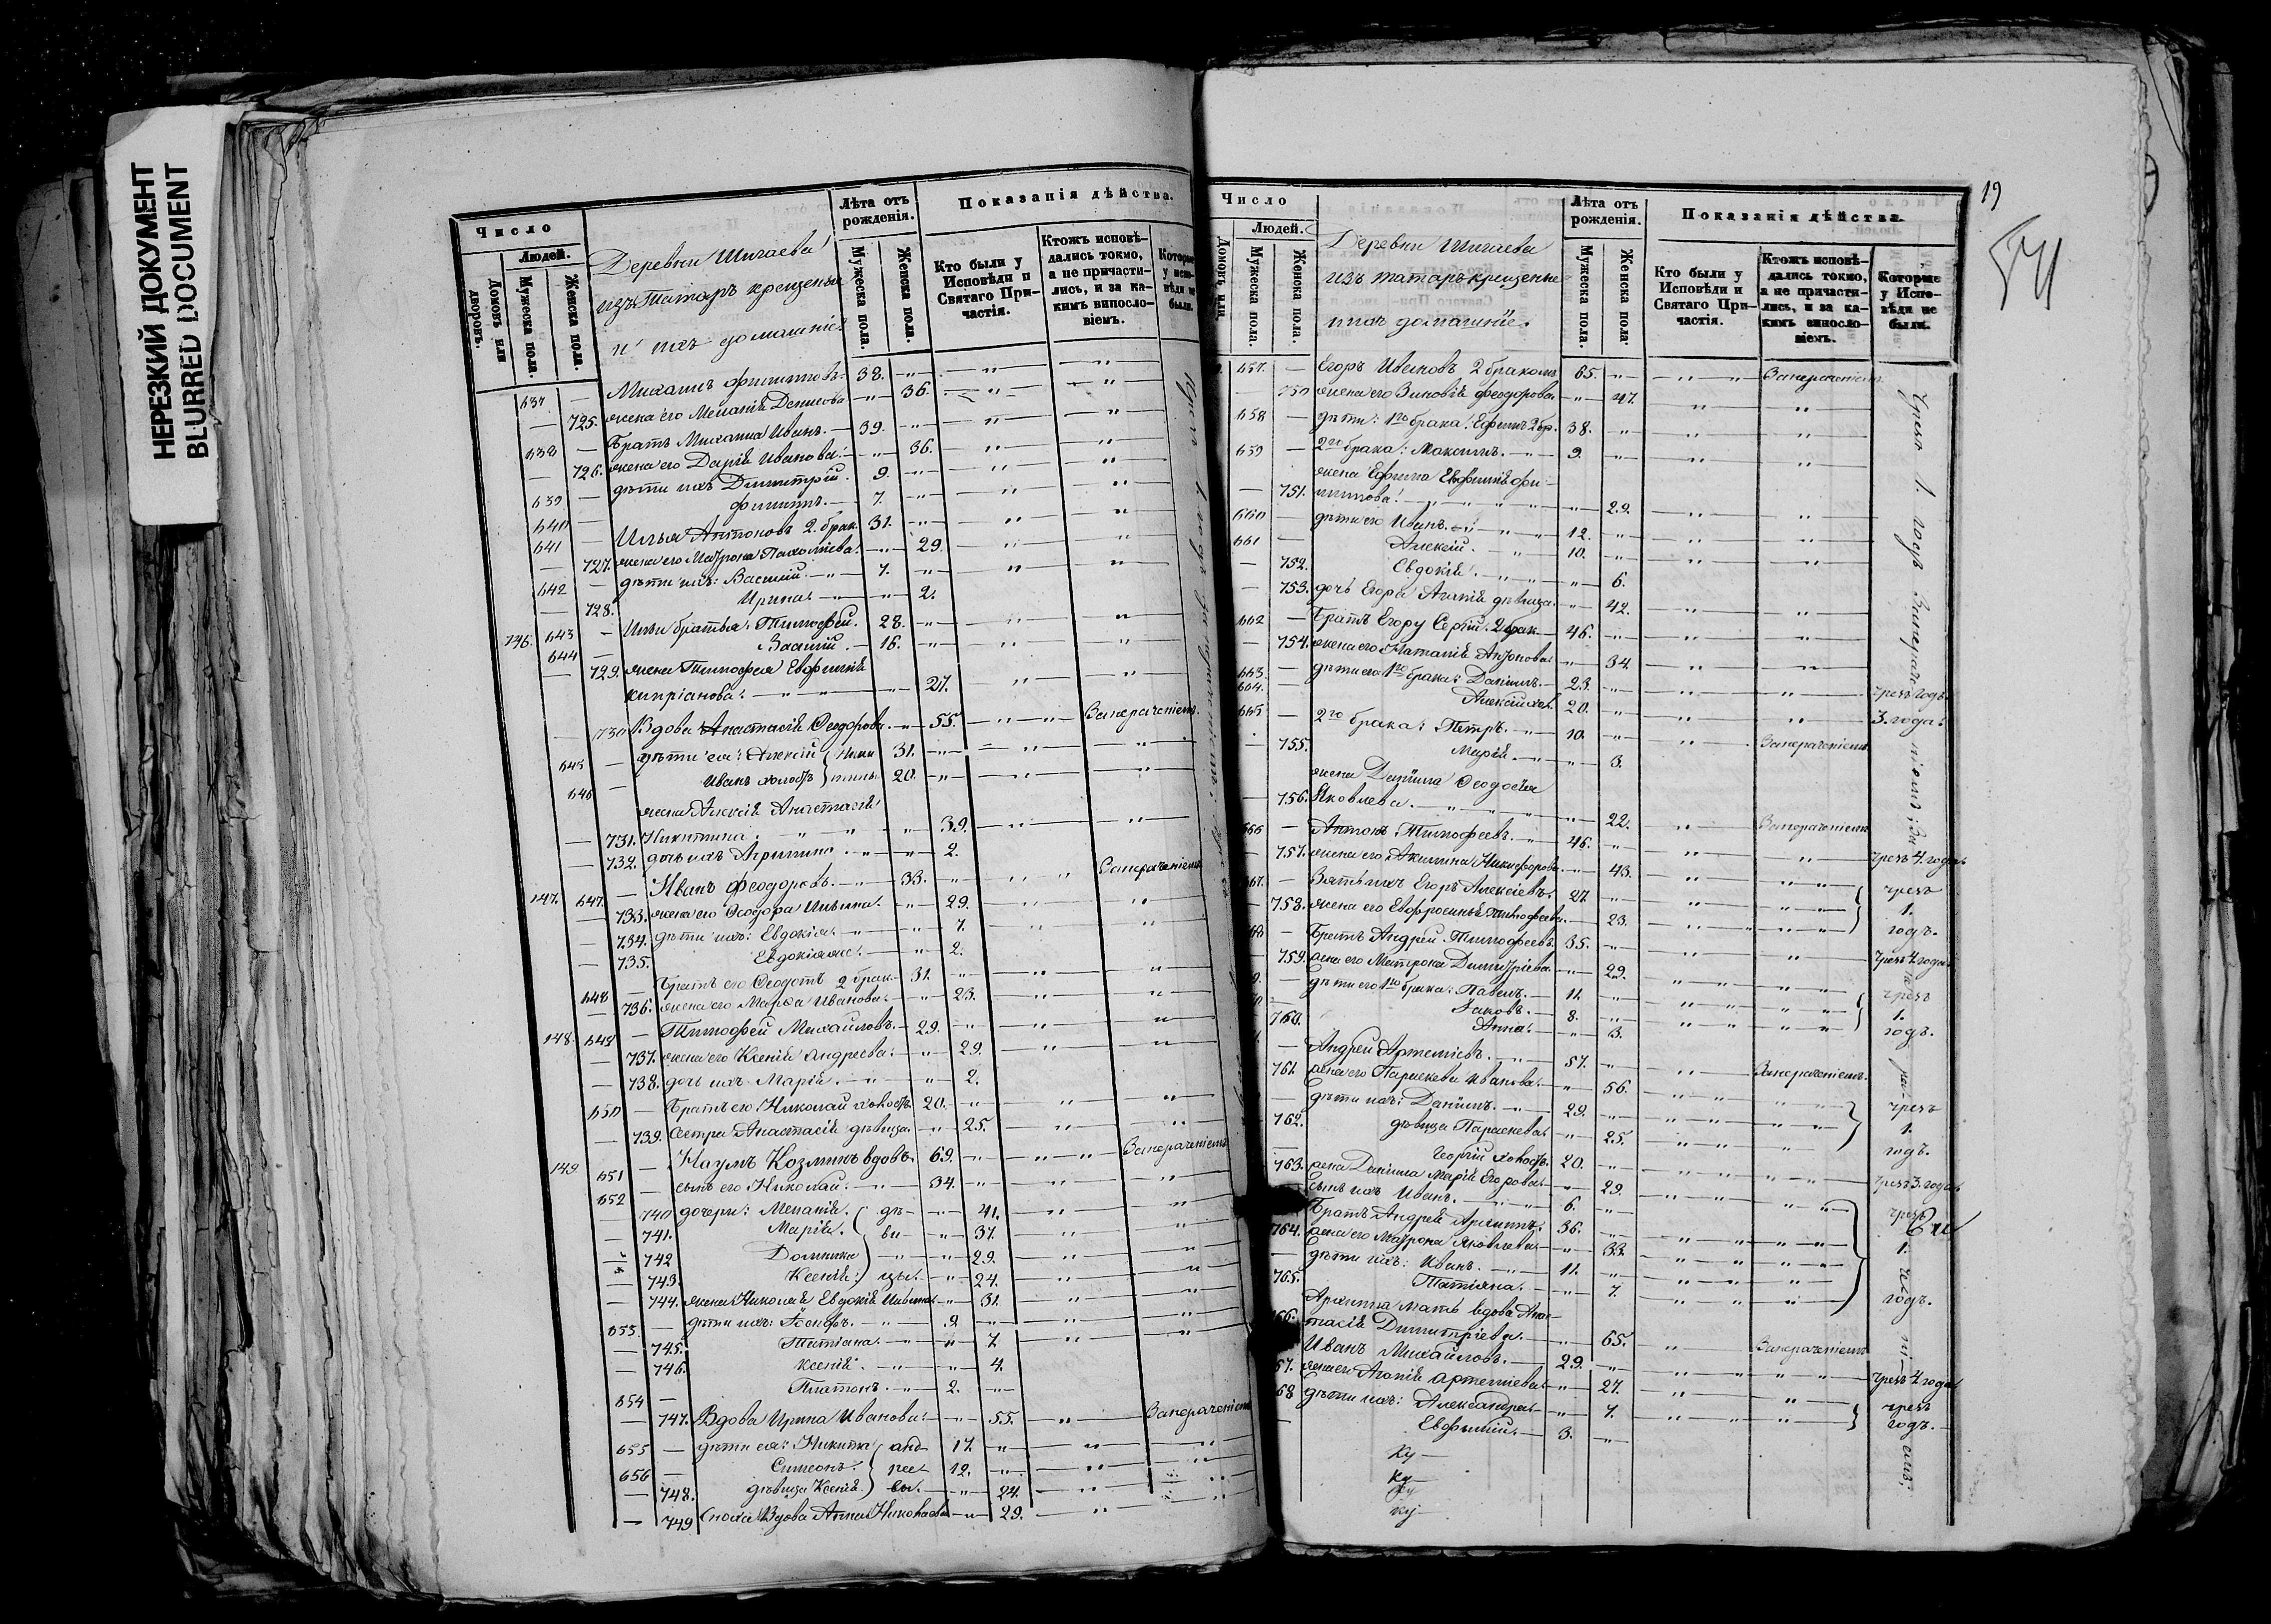 НЕРЕЗКИЙ ДОКУМЕНТ
BLURRED DOCUMENT
Число
Людей.
Домовъ или дворовъ.
Мужеска пола.
Женска пола.
Деревни Шигаева
изъ Татаръ крещеные
и ихъ домашніе
Лѣта отъ рожденія.
Мужеска пола.
Женска пола.
Показанія дѣйства.
Кто были у Исповѣди и Святаго Причастія.
Ктожъ исповѣдались токмо, а не причастились, и за какимъ винословіемъ.
Которые у исповѣди не были.
637 — Михаилъ Филипповъ. 38.
— 725. жена его Меланія Денисова 36.
638 — Братъ Михаила Иванъ. 39.
— 726. жена его Дарія Иванова. 36.
639 — дѣти ихъ Димитрій. 9.
640 — Филиппъ. 7.
641 — Илья Антоновъ 2. брак. 31.
— 727. жена его Матрона Пахоміева. 29.
642 — дѣти ихъ: Василій. 7.
— 728. Ирина. 2.
146. 643 — Ильи братья: Тимофей. 28.
644 — Василій. 16.
— 729. жена Тимофея Евфимія
Кипріанова. 27.
— 730 Вдова Анастасія Ѳеодорова. 55. За нерачениемъ.
645 — дѣти ея: Алексій 31.
646 — Иванъ холостъ 20.
жена Алексія Анастасія
— 731. Никитина. 39.
— 732. дочь ихъ Агрипина. 2.
147. 647. — Иванъ Феодоровъ. 33. За нерачениемъ
— 733. жена его Ѳеодора Ильина. 29.
— 734. дѣти ихъ: Евдокія. 7.
— 735. Евдокія же. 2.
648 — Братъ его Ѳеодотъ 2 брак. 31.
— 736. жена его Марѳа Иванова. 23.
148. 649 — Тимофей Михайловъ. 29.
— 737. жена его Ксенія Андреева. 29.
— 738. дочь ихъ Марія. 2.
650 — Братъ его Николай холостъ 20.
— 739. Сестра Анастасія дѣвица. 25.
149 651 — Наумъ Козминъ вдовъ. 69. За нерачениемъ
652 — сынъ его Николай. 34.
740 дочери: Меланія. дѣ- 41.
— 741. Марія. ви- 37.
— 742 Домника 29.
— 743. Ксенія. цы. 24.
— 744. жена Николая Евдокія Ильина. 31.
653. — дѣти ихъ: 9.
— 745. Татіана. 7.
— 746. Ксенія. 4.
654 — Платонъ. 2.
— 747. Вдова Ирина Иванова. 55. За нерачениемъ
655 — дѣти ея: Никита Анд- 17.
656 — Симеонъ. рее- 12.
— 748. дѣвица Ксенія. вы. 24.
— 749 Сноха Вдова Анна Николаева 29.
19
541
Число
Людей.
Домовъ или
Мужеска пола.
Женска пола.
Деревни Шигаева
изъ татаръ крещеные
и ихъ домашніе.
Лѣта отъ рожденія.
Мужеска пола.
Женска пола.
Показанія дѣйства.
Кто были у Исповѣди и Святаго Причастія.
Ктожъ исповѣдались токмо, а не причастились, и за какимъ винословіемъ.
Которые у Исповѣди не были.
657. — Егоръ Ивановъ 2 бракомъ 65. За нерачениемъ
— 750 жена его Зиновія Феодорова 47.
658 — дѣти: 1го брака: Ефимъ 2 бр. 38.
659 — 2го брака: Максимъ. 9.
жена Ефима Евфимія Фи-
— 751. липпова. 29.
660 дѣти его Иванъ. 12.
661 — Алексій. 10.
— 752. Евдокія. 6.
— 753. дочь Егора Агапія дѣвица. 42.
662 — Братъ Егору Сергій. 2 брак. 46.
— 754. жена его Наталія Антонова. 34
663. — дѣти его 1го брака: Даніилъ. 23. чрезъ годъ.
664. — Алексій хол. 20. 3. года.
665 — 2го брака: Петръ. 10. За нерачениемъ
— 755. Марія. 3.
жена Даніила Ѳеодосія
— 756. Яковлева. 22. За нерачениемъ
666 — Антонъ Тимофеевъ. 46. чрезъ 4. года
— 757. жена его Акилина Никифорова. 43. чрезъ
667. — Зять ихъ Егоръ Алексіевъ. 27. 1.
— 758. жена его Евфросинія Тимофеева. 23. годъ.
68 — Братъ Андрей Тимофеевъ. 35. чрезъ 4. года
— 759. жена его Матрона Димитріева. 29.
9. — дѣти его 1го брака: Павелъ. 11. чрезъ
70 — Іаковъ. 8. 1.
760. Анна. 3. годъ.
— Андрей Артеміевъ. 57. За нерачениемъ.
761. жена его Параскева Иванова. 56. чрезъ
— дѣти ихъ: Даніилъ. 29. 1.
762. дѣвица Параскева. 25. годъ.
Георгій холостъ. 20. чрезъ 3. года
763. жена Даніила Марія Егорова. 29.
— сынъ ихъ Иванъ. 6. чрезъ
Братъ Андрея Архиппъ. 36.
764. жена его Матрона Яковлева. 33. 1.
— дѣти ихъ: Иванъ. 11.
765. Татіана. 7. годъ.
Архиппа мать вдова Анас-
766. тасія Димитріева. 65. За нерачениемъ
Иванъ Михайловъ. 29. чрезъ 4. года
67. жена его Агапія Артеміева. 27. чрезъ
68 дѣти ихъ: Александра. 7. годъ.
— Евфимій. 3.